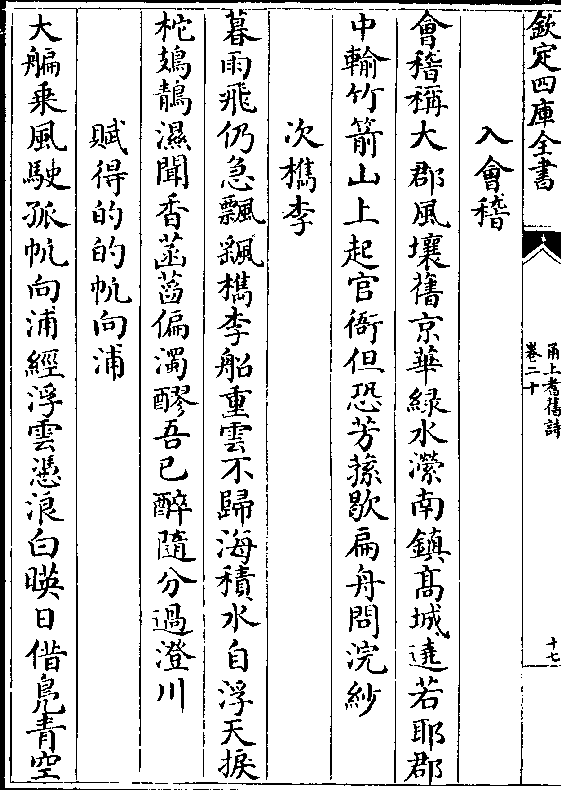 欽定四庫全書
甬上耆舊詩
卷二十
十七
入會稽
會稽稱大郡風壤舊京華緑水濴南鎮髙城遶若耶郡
中輸竹箭山上起官衙但恐芳蓀歇扁舟問浣紗
次檇李
暮雨飛仍急飄颻檇李船重雲不歸海積水自浮天捩
柁鴂鶄濕聞香菡萏偏濁醪吾已醉隨分過澄川
賦得的的帆向浦
大艑乗風駛孤帆向浦經浮雲憑浪白暎日借鳧青空